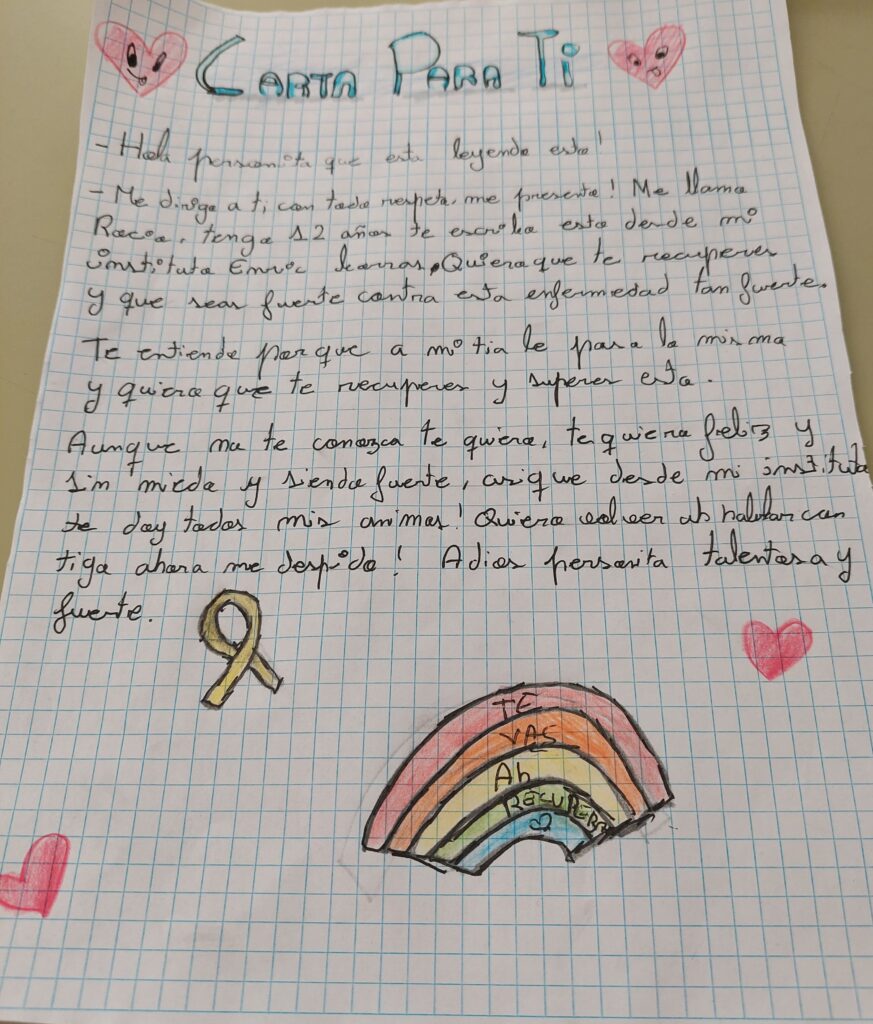 CARTA PARA TI
- Hola personita que esta leyendo esto!
- Me dirigo a ti con todo respeto, me presento! Me llamo
tengo 12 años te escribo esto desde mi
instituto Enric. Quiero que te recuperes
y que seas fuerte contra esta enfermedad tan fuerte.
Te entiendo porque a mi tia le paso lo mismo
y quiero que te recuperes y superes esto.
Aunque no te conozca te quiero, te quiero feliz y
sin miedo y siendo fuerte, asi que desde mi instituto
te doy todos mis animos! Quiero volver ah hablar con
tigo ahora me despido! Adios personita talentosa y
fuerte.
TE
VAS
Ah
RECUPERAR